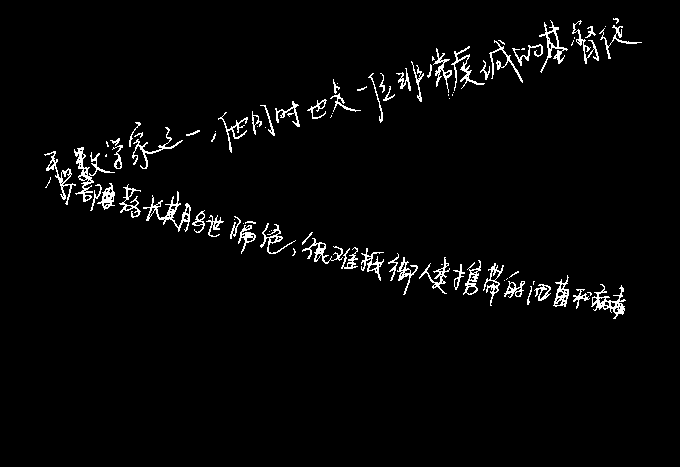 数学家之一,他同时也是一位非常虔诚的基督徒
部落长期与世隔绝,很难抵御人类携带的细菌和病毒